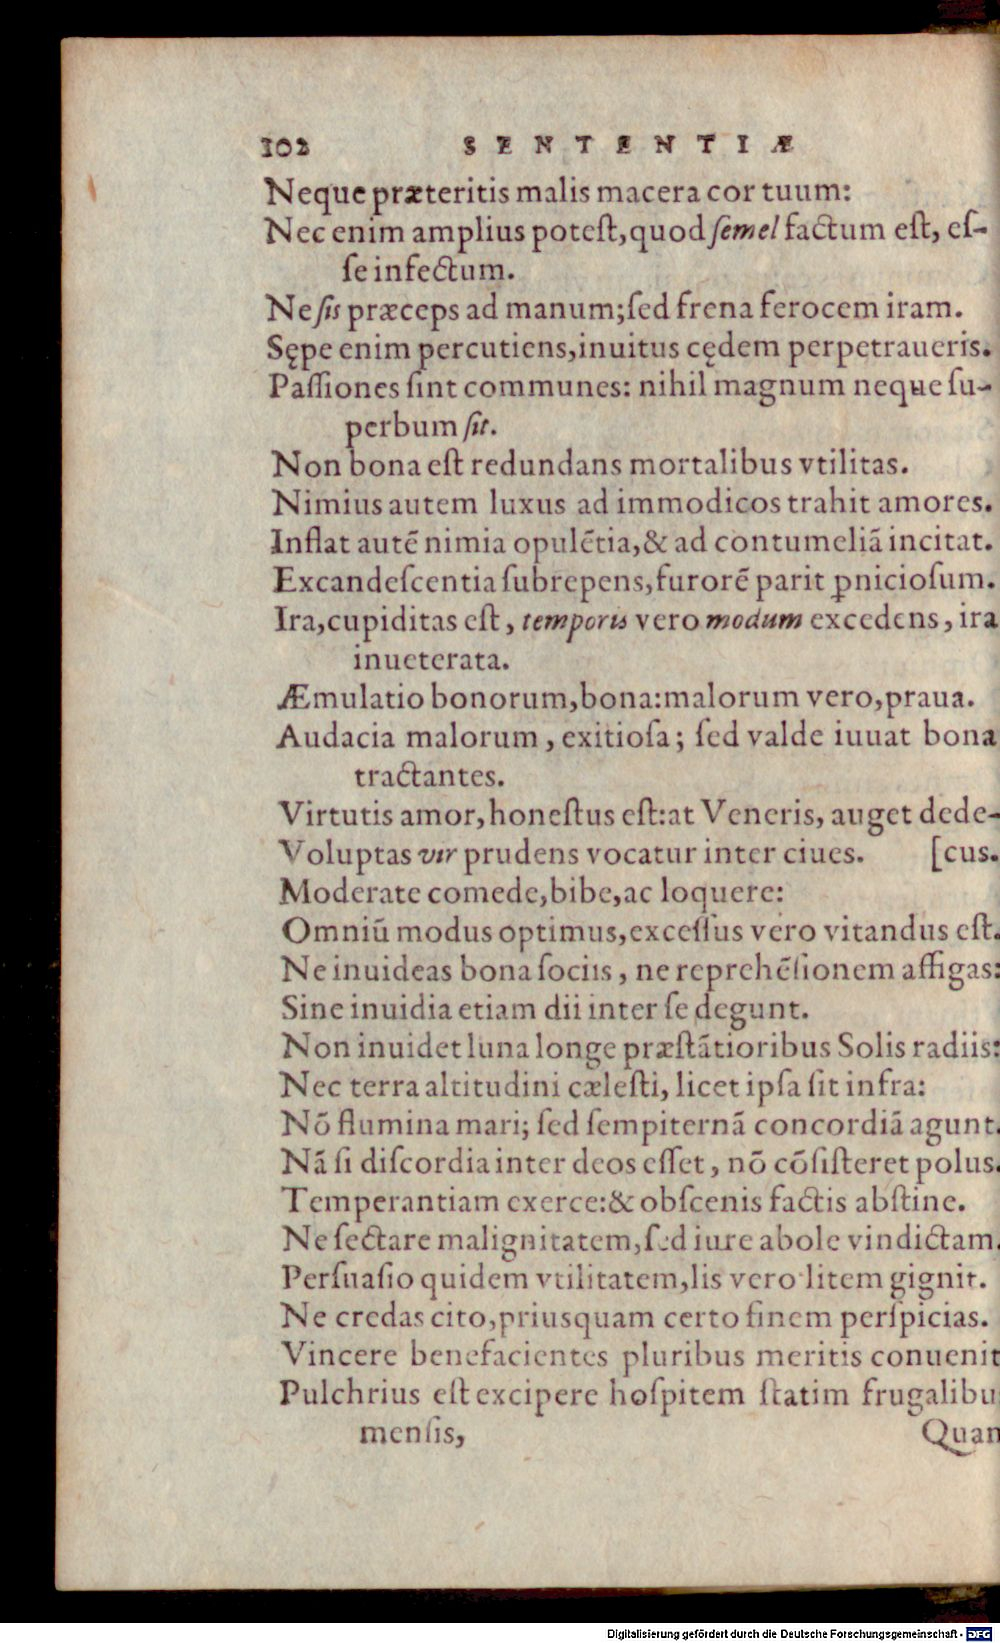 102 SENTENTIÆ
Neque præteritis malis macera cor tuum:
Nec enim amplius poteſt, quod ſemel factum eſt, eſ-
ſe infectum.
Ne ſis præceps ad manum; ſed frena ferocem iram.
Sępe enim percutiens, inuitus cędem perpetraueris.
Paſſiones ſint communes: nihil magnum neque ſu-
perbum ſit.
Non bona eſt redundans mortalibus vtilitas.
Nimius autem luxus ad immodicos trahit amores.
Inflat autē nimia opulētia, & ad contumeliā incitat.
Excandeſcentia ſubrepens, furorē parit ꝑnicioſum.
Ira, cupiditas eſt, temporis vero modum excedens, ira
inueterata.
Æmulatio bonorum, bona: malorum vero, praua.
Audacia malorum, exitioſa; ſed valde iuuat bona
tractantes.
Virtutis amor, honeſtus eſt: at Veneris, auget dede-
Voluptas vir prudens vocatur inter ciues. [cus.
Moderate comede, bibe, ac loquere:
Omniū modus optimus, exceſſus vero vitandus eſt.
Ne inuideas bona ſociis, ne reprehēſionem affigas:
Sine inuidia etiam dii inter ſe degunt.
Non inuidet luna longe præſtātioribus Solis radiis:
Nec terra altitudini cæleſti, licet ipſa ſit infra:
Nō flumina mari; ſed ſempiternā concordiā agunt.
Nā ſi diſcordia inter deos eſſet, nō cōſiſteret polus.
Temperantiam exerce: & obſcenis factis abſtine.
Ne ſectare malignitatem, ſed iure abole vindictam.
Perſuaſio quidem vtilitatem, lis vero litem gignit.
Ne credas cito, priusquam certo finem perſpicias.
Vincere benefacientes pluribus meritis conuenit
Pulchrius eſt excipere hoſpitem ſtatim frugalibu
menſis, Quan
Digitalisierung gefördert durch die Deutsche Forschungsgemeinschaft - DFG